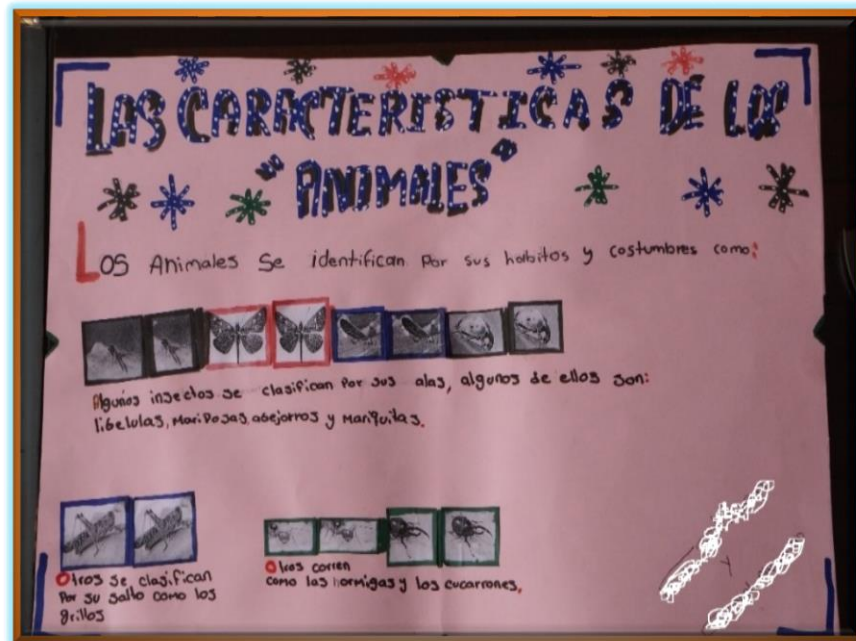 LAS CARACTERISTICAS DE LOS
"ANIMALES"
LOS Animales se identifican Por sus habitos y costumbres como:
Algunos insectos se clasifican Por sus alas, algunos de ellos son:
libelulas, Mariposas, abejorros y Mariquitas.
Otros se clasifican
Por su salto como los
grillos
Otros corren
como las hormigas y los cucarrones.
Y